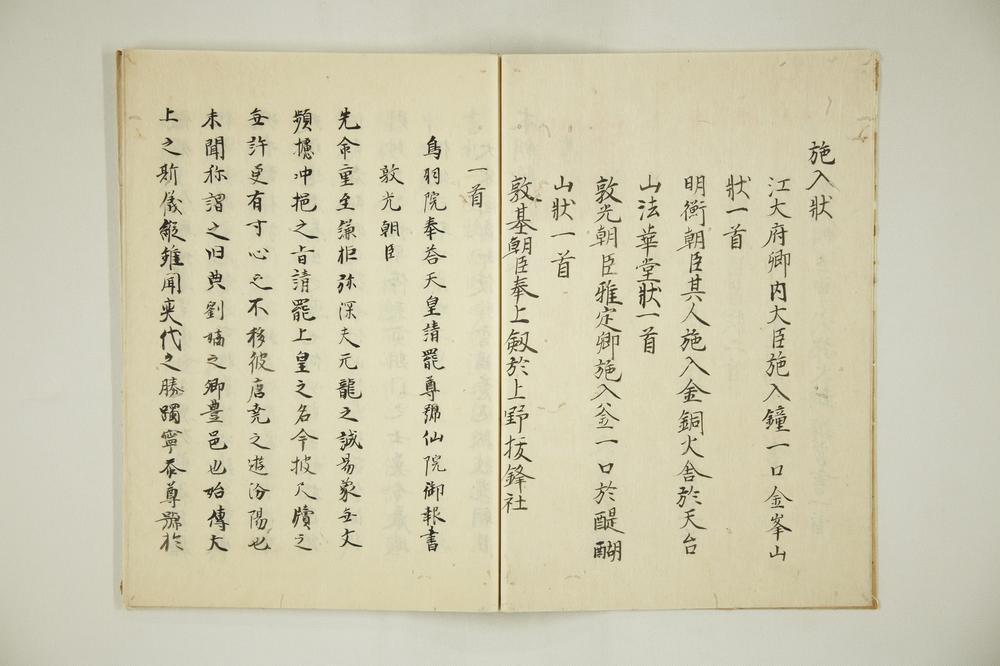 施入狀
江大府卿内大臣施入鐘一口金峯山
狀一首
明衡朝臣其人施入金銅火舎於天台
山法華堂狀一首
敦光朝臣雅定卿施入釜一口於醍醐
山狀一首
敦基朝臣奉上劔於上野抜鋒社
鳥羽院奉荅天皇請罷尊号仙院御報書
一首
敦光朝臣
先命重至謙柜弥深夫元龍之誡易象無文
頻攄冲挹之旨請罷上皇之名今披尺牘之
無許更有寸心之不移彼唐尭之遊汾陽也
未聞称謂之旧典劉媼之卿豊邑也始傳太
上之斯儀縦雖聞奕代之勝躅寧忝尊號於